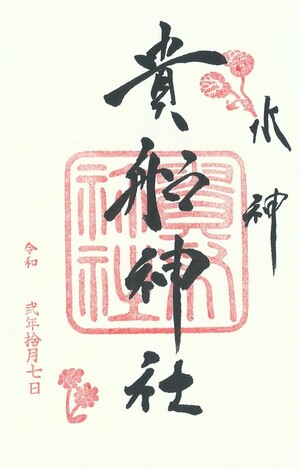 水神
貴船神社
貴船神社
令和 弐年拾月七日